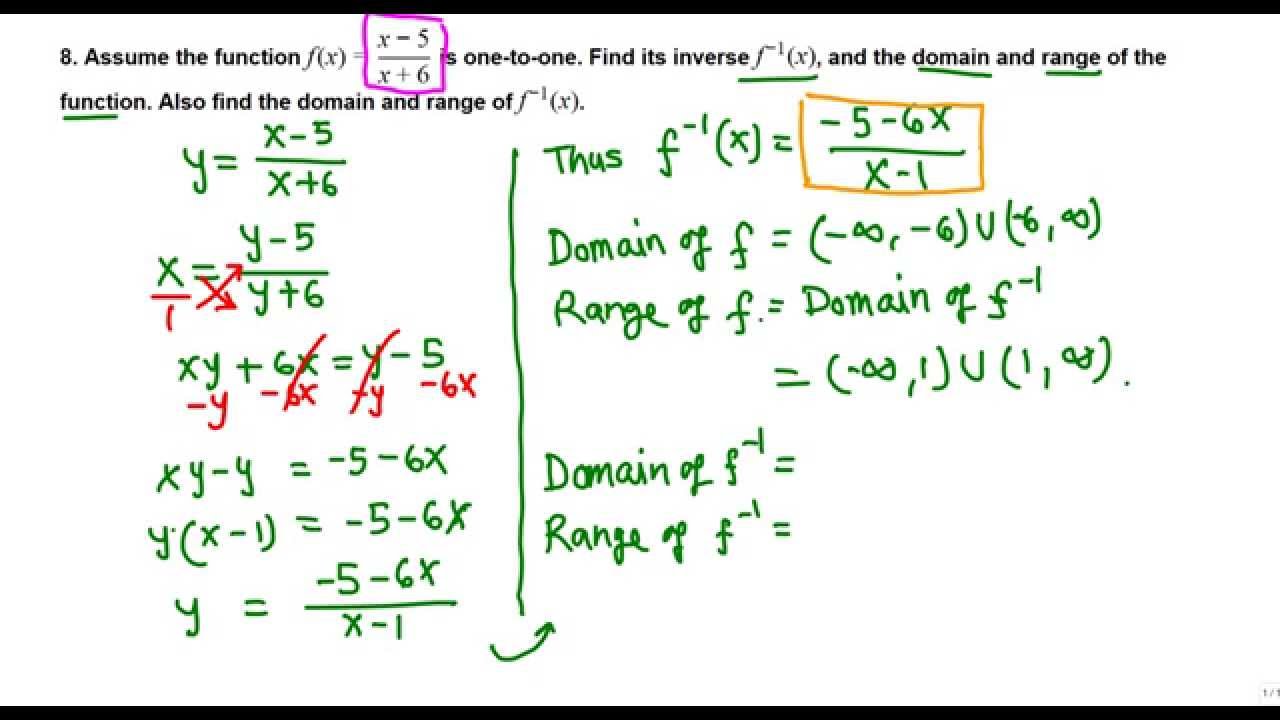 8. Assume the function f(x) = x − 5 / x + 6 is one-to-one. Find its inverse f⁻¹(x), and the domain and range of the
function. Also find the domain and range of f⁻¹(x).
y = x-5 / x+6
x/1 = y-5 / y+6
xy + 6x = y - 5
-y -6x -y -6x
xy-y = -5-6x
y·(x-1) = -5-6x
y = -5-6x / x-1
Thus f⁻¹(x) = -5-6x / x-1
Domain of f = (-∞, -6) ∪ (-6, ∞)
Range of f. = Domain of f⁻¹
= (-∞, 1) ∪ (1, ∞).
Domain of f⁻¹ =
Range of f⁻¹ =
1 / 1